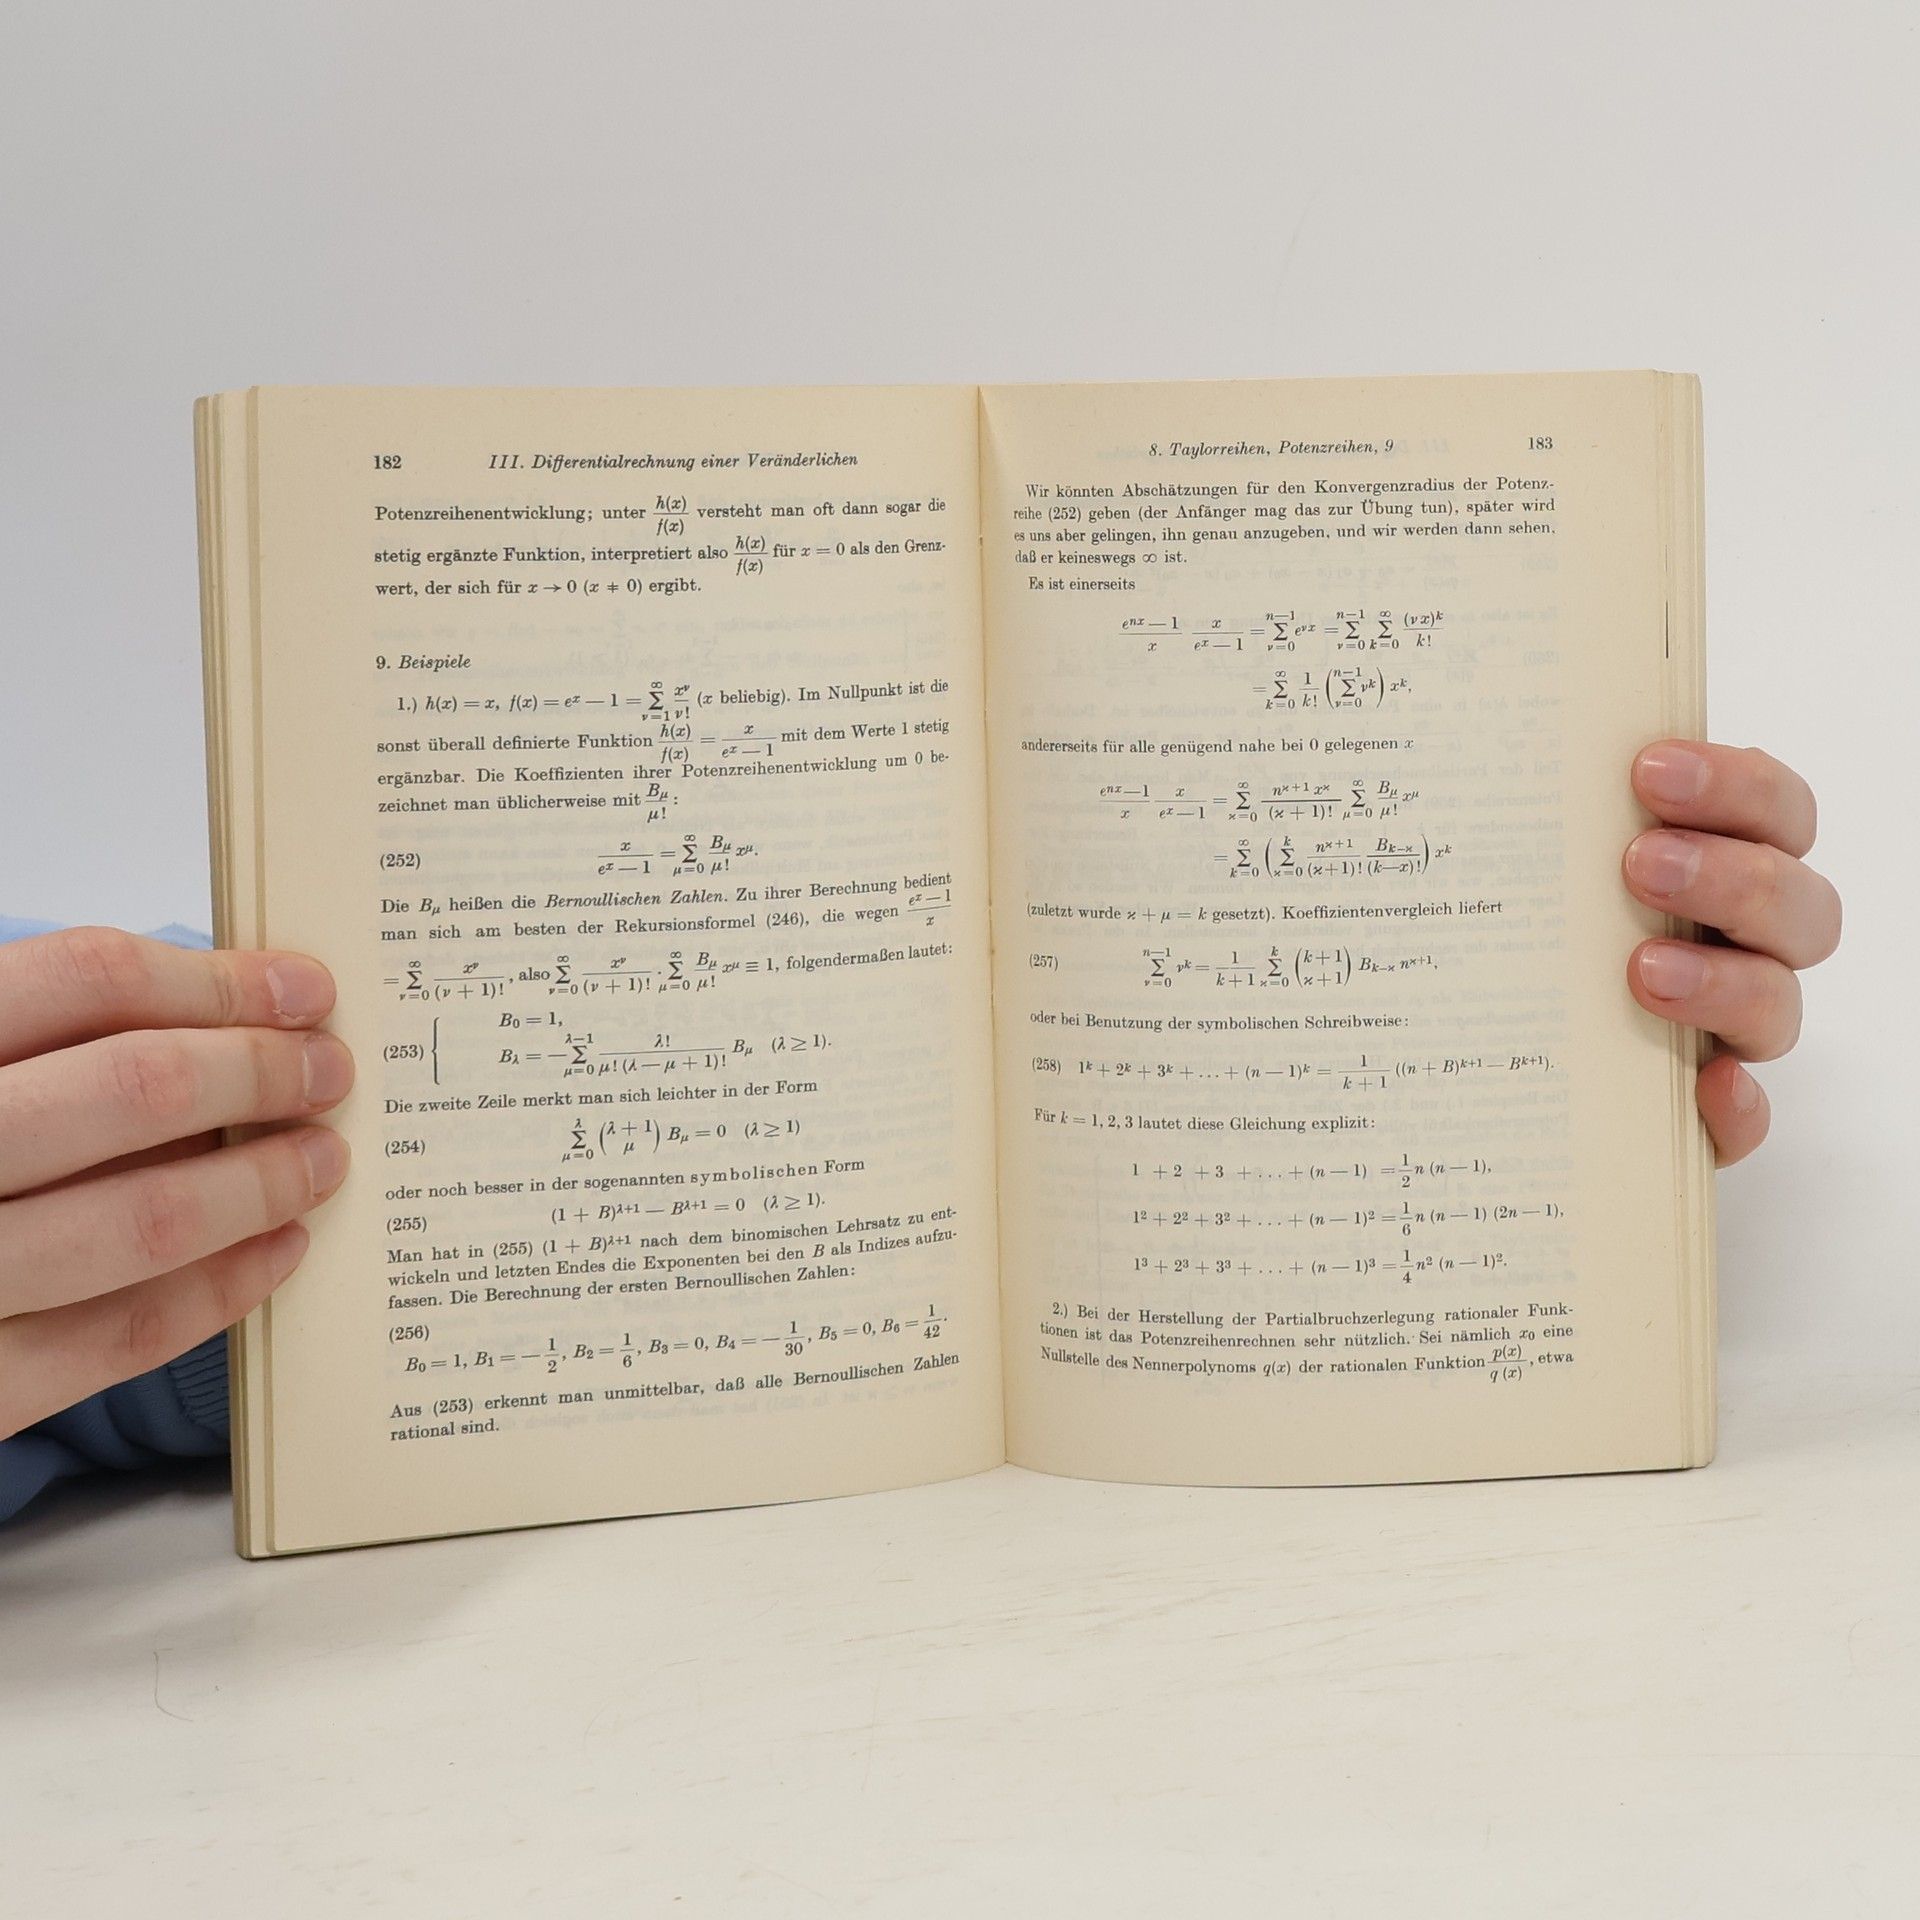 182 III. Differentialrechnung einer Veränderlichen
Potenzreihenentwicklung; unter h(x)/f(x) versteht man oft dann sogar die
stetig ergänzte Funktion, interpretiert also h(x)/f(x) für x = 0 als den Grenz-
wert, der sich für x → 0 (x ≠ 0) ergibt.
9. Beispiele
1.) h(x) = x, f(x) = e^x — 1 = ∑_{ν=1}^{∞} x^ν/ν! (x beliebig). Im Nullpunkt ist die
sonst überall definierte Funktion h(x)/f(x) = x/(e^x — 1) mit dem Werte 1 stetig
ergänzbar. Die Koeffizienten ihrer Potenzreihenentwicklung um 0 be-
zeichnet man üblicherweise mit B_μ/μ! :
(252) x/(e^x — 1) = ∑_{μ=0}^{∞} B_μ/μ! x^μ.
Die B_μ heißen die Bernoullischen Zahlen. Zu ihrer Berechnung bedient
man sich am besten der Rekursionsformel (246), die wegen (e^x — 1)/x
= ∑_{ν=0}^{∞} x^ν/(ν + 1)! , also ∑_{ν=0}^{∞} x^ν/(ν + 1)! · ∑_{μ=0}^{∞} B_μ/μ! x^μ ≡ 1, folgendermaßen lautet:
(253) { B_0 = 1,
B_λ = — ∑_{μ=0}^{λ—1} λ!/(μ! (λ — μ + 1)!) B_μ (λ ≥ 1).
Die zweite Zeile merkt man sich leichter in der Form
(254) ∑_{μ=0}^{λ} (λ + 1 über μ) B_μ = 0 (λ ≥ 1)
oder noch besser in der sogenannten symbolischen Form
(255) (1 + B)^{λ+1} — B^{λ+1} = 0 (λ ≥ 1).
Man hat in (255) (1 + B)^{λ+1} nach dem binomischen Lehrsatz zu ent-
wickeln und letzten Endes die Exponenten bei den B als Indizes aufzu-
fassen. Die Berechnung der ersten Bernoullischen Zahlen:
(256)
B_0 = 1, B_1 = — 1/2, B_2 = 1/6, B_3 = 0, B_4 = — 1/30, B_5 = 0, B_6 = 1/42.
Aus (253) erkennt man unmittelbar, daß alle Bernoullischen Zahlen
rational sind.
8. Taylorreihen, Potenzreihen, 9 183
Wir könnten Abschätzungen für den Konvergenzradius der Potenz-
reihe (252) geben (der Anfänger mag das zur Übung tun), später wird
es uns aber gelingen, ihn genau anzugeben, und wir werden dann sehen,
daß er keineswegs ∞ ist.
Es ist einerseits
(e^{nx} — 1)/x x/(e^x — 1) = ∑_{ν=0}^{n—1} e^{νx} = ∑_{ν=0}^{n—1} ∑_{k=0}^{∞} (νx)^k/k!
= ∑_{k=0}^{∞} 1/k! (∑_{ν=0}^{n—1} ν^k) x^k,
andererseits für alle genügend nahe bei 0 gelegenen x
(e^{nx}—1)/x x/(e^x — 1) = ∑_{ϰ=0}^{∞} n^{ϰ+1} x^ϰ/(ϰ + 1)! ∑_{μ=0}^{∞} B_μ/μ! x^μ
= ∑_{k=0}^{∞} (∑_{ϰ=0}^{k} n^{ϰ+1}/(ϰ+1)! B_{k—ϰ}/(k—x)!) x^k
(zuletzt wurde ϰ + μ = k gesetzt). Koeffizientenvergleich liefert
(257) ∑_{ν=0}^{n—1} ν^k = 1/(k + 1) ∑_{ϰ=0}^{k} (k + 1 über ϰ + 1) B_{k—ϰ} n^{ϰ+1},
oder bei Benutzung der symbolischen Schreibweise:
(258) 1^k + 2^k + 3^k + ... + (n — 1)^k = 1/(k + 1) ((n + B)^{k+1} — B^{k+1}).
Für k = 1, 2, 3 lautet diese Gleichung explizit:
1 + 2 + 3 + ... + (n — 1) = 1/2 n (n — 1),
1² + 2² + 3² + ... + (n — 1)² = 1/6 n (n — 1) (2n — 1),
1³ + 2³ + 3³ + ... + (n — 1)³ = 1/4 n² (n — 1)².
2.) Bei der Herstellung der Partialbruchzerlegung rationaler Funk-
tionen ist das Potenzreihenrechnen sehr nützlich. Sei nämlich x_0 eine
Nullstelle des Nennerpolynoms q(x) der rationalen Funktion p(x)/q(x), etwa